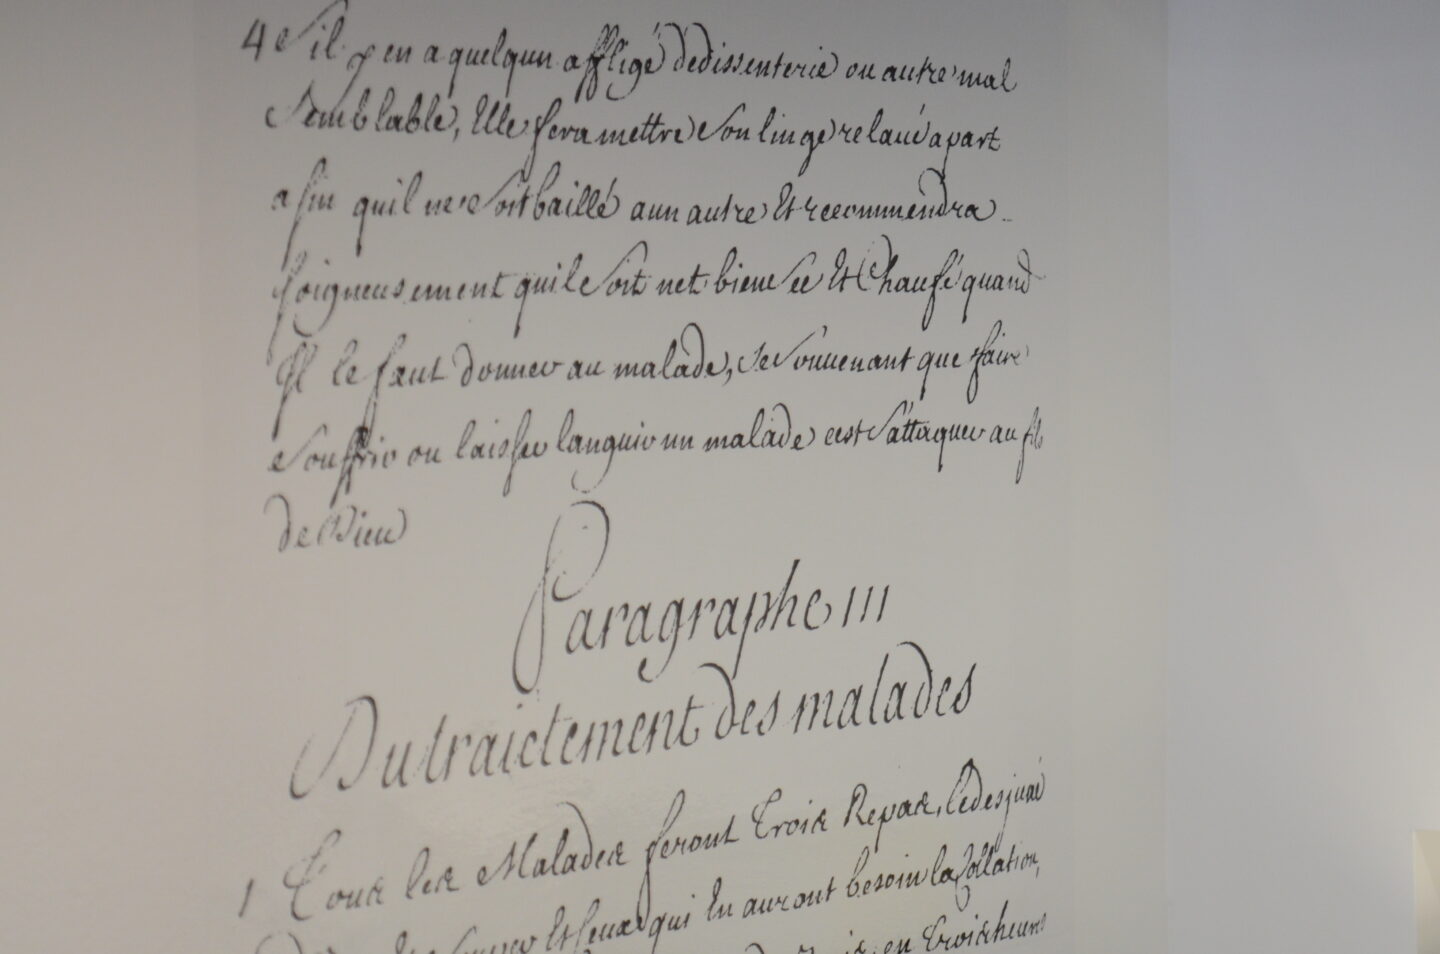 4 S'il y en a quelqun affligé dedissenterie ou autre mal
Semblable, Elle fera mettre son linge relaué apart
afin quil ne soit baillé aun autre Et recommendra
soigneusement quil soit net bien sec Et Chaufé quand
Il le faut donner au malade, se souuenant que faire
souffrir ou laisser languir un malade cest s'attaquer au fils
de Dieu
Paragraphe III
Du traictement des malades
1 Tous les Malades feront Trois Repas, le desjuné
souper Et Ceux qui En auront besoin la Collation,
en Trois heures